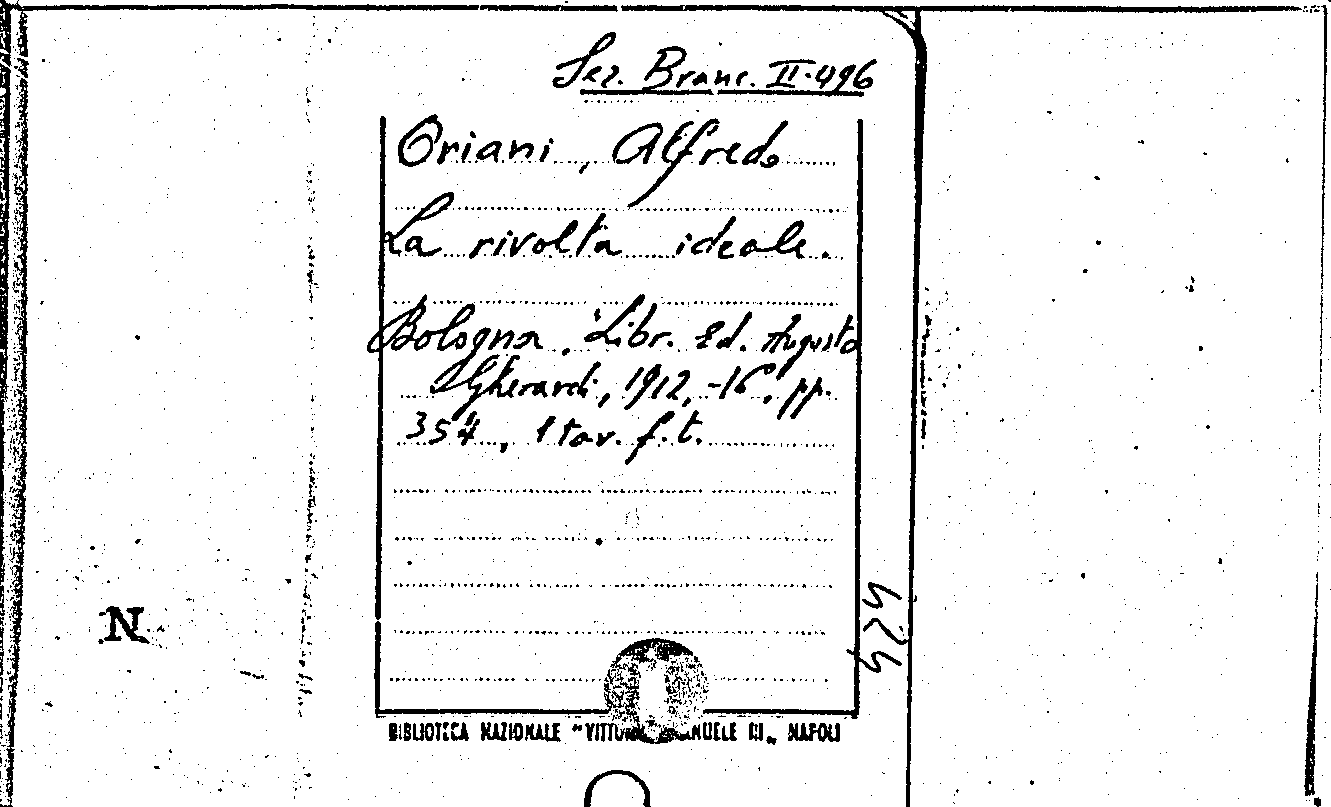 Sez. Branc. II-496
Oriani, Alfredo
La rivolta ideale.
Bologna, Libr. Ed. Augusto
Gherardi, 1912, -16°, pp.
354, 1 tav. f. t.
N
BIBLIOTECA NAZIONALE "VITTORIO EMANUELE III„ NAPOLI